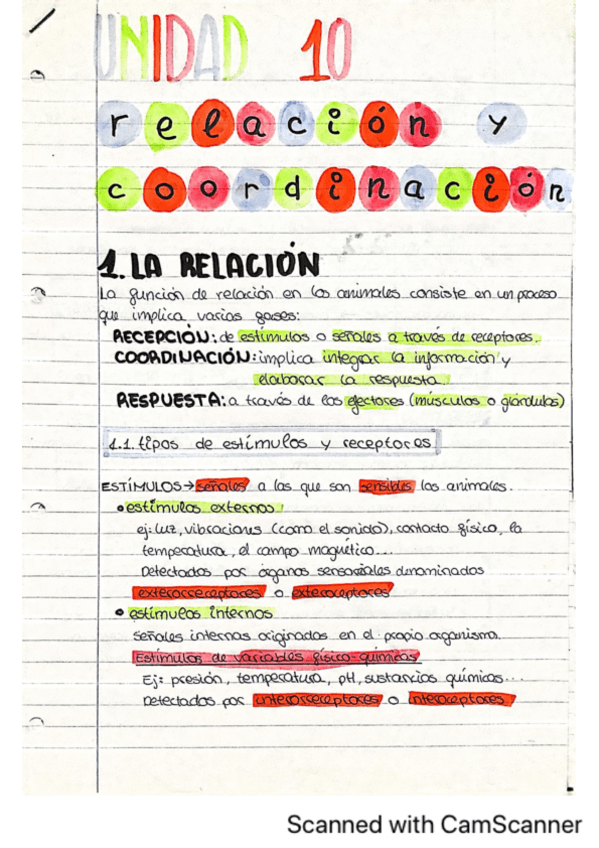 UNIDAD 10
relación y
coordinación
1. LA RELACIÓN
La función de relación en los animales consiste en un proceso
que implica varias fases:
RECEPCIÓN: de estímulos o señales a través de receptores.
COORDINACIÓN: implica integrar la información y
elaborar la respuesta.
RESPUESTA: a través de los efectores (músculos o glándulas)
1.1. tipos de estímulos y receptores
ESTÍMULOS → señales a las que son sensibles los animales.
• estímulos externos
ej: luz, vibraciones (como el sonido), contacto físico, la
temperatura, el campo magnético...
Detectados por órganos sensoriales denominados
exterorreceptores o exteroceptores
• estímulos internos
Señales internas originadas en el propio organismo.
Estímulos de variables físico-químicas
Ej: presión, temperatura, pH, sustancias químicas...
Detectados por interorreceptores o interoceptores.
Scanned with CamScanner